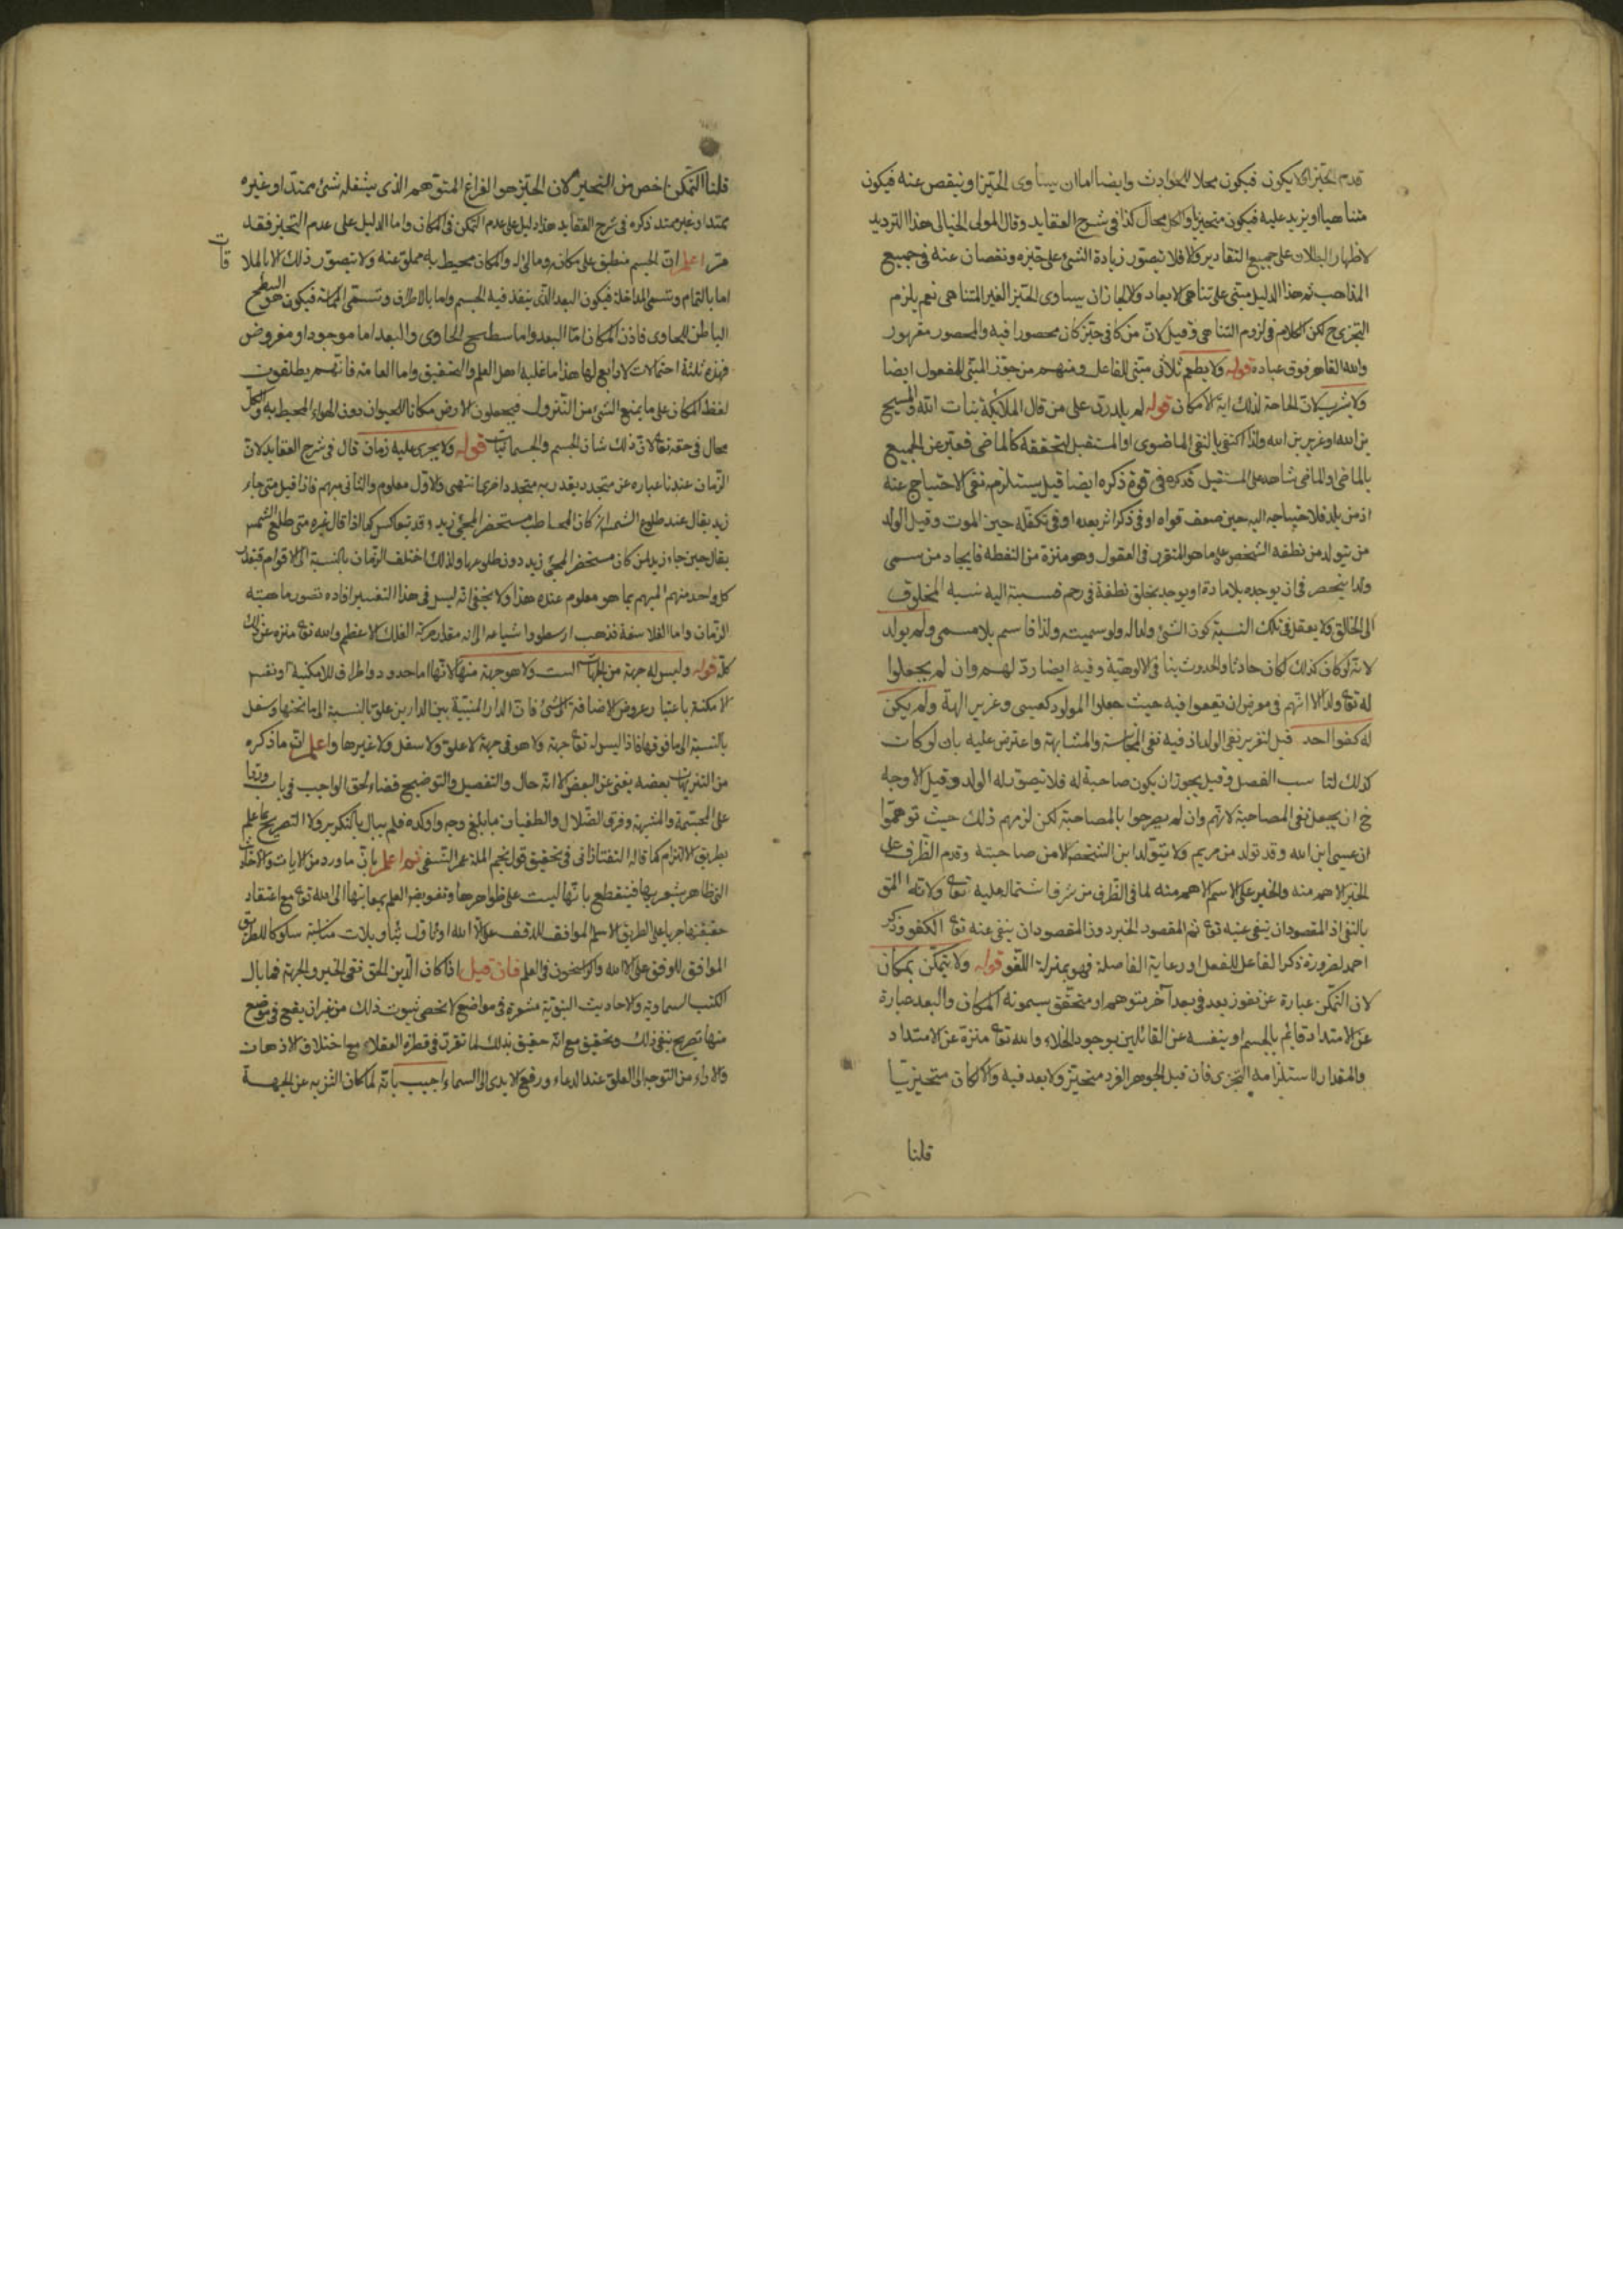 قدم الحيز او لا يكون فيكون محلا للحوادث وايضا اما ان يساوى الحيز او ينقص عنه فيكون
متناهيا او يزيد عليه فيكون متحيزا والكل محال كذا فى شرح العقايد وقال المولى الخيالى هذا الترديد
لاظهار البطلان على جميع التقادير والا فلا يتصور زيادة الشئ على حيزه ونقصان عنه فى جميع
المذاهب ثم هذا الدليل مبنى على تناهى الابعاد والا لجاز ان يساوى الحيز الغير المتناهى نعم يلزم
التجزى ح لكن الكلام فى لزوم التناهى وقيل لان من كان فى حيز كان محصورا فيه والمحصور مقهور
والله القاهر فوق عباده قوله ولا يطعم ثلاثى مبنى للفاعل ومنهم من جوز المبنى للمفعول ايضا
ولا يشرب لان الحاجة لذلك اية الامكان قوله لم يلد رد على من قال الملائكة بنات الله والمسيح
بن الله او عزير بن الله ولذا اكتفى بالنفى الماضوى او المستقبل لتحققه كالماضى فعبر عن الجميع
بالماضى والماضى شاهد على المستقبل فذكره فى قوة ذكره ايضا قيل يستلزم نفى الاحتياج عنه
اذ من يلد فلاحتياجه اليه حين ضعف قواه او فى ذكر اثر بعده او فى تكفله حين الموت وقيل الولد
من يتولد من نطفه الشخص على ما هو المتقرر فى العقول وهو منزه من النطفه فايجاد من يسمى
ولدا ينحصر فى ان يوجده بلا مادة او يوجد بخلق نطفة فى رحم فنسبة اليه نسبه المخلوق
الى الخالق ولا يعقل فى تلك النسبة كون الشئ ولدا له ولو سميته ولدا فاسم بلا مسمى ولم يولد
لانه لو كان كذلك لكان حادثا والحدوث ينافى الالوهية وفيه ايضا رد لهم وان لم يجعلوا
له تع والدا الا انهم فى معرض ان يقعوا فيه حيث جعلوا المولود كعيسى وعزير الهة ولم يكن
له كفوا احد قيل لتقرير نفى الولد اذ فيه نفى المجانسة والمشابهة واعترض عليه بان لو كان
كذلك لنا سب الفصل وقيل يجوز ان يكون صاحبة له فلا تصور له الولد وقيل الاوجه
ح ان يجعل نفى المصاحبة لانهم وان لم يصرحوا بالمصاحبة لكن لزمهم ذلك حيث توهموا
ان عيسى ابن الله وقد تولد من مريم ولا يتولد ابن الشخص الا من صاحبته وقدم الظرف على
الخبر الاهم منه والخبر على الاسم الاهم منه لما فى الظرف من شرف اشتماله عليه تعالى ولانه المق
بالنفى اذ المقصود ان ينفى عنه تع ثم المقصود الخبر دون المقصود ان ينفى عنه تع الكفو وذكر
احد لضرورة ذكر الفاعل للفعل او رعاية الفاصلة فهو بمنزلة اللغو قوله ولا يتمكن بمكان
لان التمكن عبارة عن نفوذ بعد فى بعد آخر متوهم او متحقق يسمونه المكان والبعد عبارة
عن الامتداد قايم بالجسم او بنفسه عن القائلين بوجود الخلاء والله تع منزه عن الامتداد
والمقدار لاستلزامه التجزى فان قيل الجوهر الفرد متحيز ولا بعد فيه والا لكان متجزيا
قلنا
قلنا التمكن اخص من التحيز لان الحيز هو الفراغ المتوهم الذى يشغله شئ ممتد او غيره
ممتدا وغير ممتد ذكره فى شرح العقايد هذا دليل على عدم التمكن فى المكان واما الدليل على عدم التحيز فقد
مر اعلم ان الجسم منطبق على مكانه ومالئ له والمكان محيط به مملو عنه ولا يتصور ذلك الا بالملا
قات
اما بالتمام وتسمى المداخلة فيكون البعد الذى ينفذ فيه الجسم واما بالاطراف وتسمى المماسة فيكون هو السطح
الباطن للحاوى فاذن المكان اما البعد واما سطح الحاوى والبعد اما موجود او مفروض
فهذه ثلثة احتمالات لا رابع لها هذا ما عليه اهل العلم والتحقيق واما العامة فانهم يطلقون
لفظ المكان على ما يمنع الشئ من النزول فيجعلون الارض مكانا للحيوان دون الهواء المحيط به والكل
محال فى حقه تعا لان ذلك شان الجسم والجسمانيات قوله ولا يجرى عليه زمان قال فى شرح العقايد لان
الزمان عندنا عباره عن متجدد يقدر به متجدد اخر انتهى والاول معلوم والثانى مبهم فاذا قيل متى جاء
زيد يقال عند طلوع الشمس ان كان المخاطب مستحضر المجئ زيد وقد تعاكس كما اذا قال غيره متى طلع الشمس
يقال حين جاء زيد لمن كان مستحضر المجئ زيد دون طلوعها ولذلك اختلف الزمان بالنسبة الى الاقوام فيقدر
كل واحد منهم المبهم بما هو معلوم عنده هذا ولا يخفى انه ليس فى هذا التفسير افاده تصور ماهيته
الزمان واما الفلاسفة فذهب ارسطو واشياعه الى انه مقدار حركة الفلك الاعظم والله تع منزه عن ذلك
كله قوله وليس له جهة من الجهات الست ولا هو جهة منها لانها اما حدود واطراف للامكنية او نفس
الامكنة باعتبار عروض الاضافة الى شئ فان الدار المبنية بين الدارين علو بالنسبة الى ما تحتها وسفل
بالنسبة الى ما فوقها فاذا ليس له تعا جهة ولا هو فى جهة لا علو ولا سفل ولا غيرها واعلم ان ما ذكره
من التنزيهات بعضه يغنى عن البعض الا انه حال والتفصيل والتوضيح قضاء لحق الواجب فى باب وردا
على المجسمة والمشبهة وفرق الضلال والطغيان مبابلغ وجه واوكده فلم يبال بالتكرير ولا التصريح بما علم
بطريق الالتزام كما قاله التفتازانى فى تحقيق قول نجم الملة عمر النسفى ثم اعلم بان ما ورد من الايات والاحاديث
التى ظاهر يشعر بها فينقطع بانها ليست على ظواهرها وتفويض العلم بمعانيها الى الله تع مع اعتقاد
حقيقتها جريا على الطريق الاسلم الموافق للوقف على الا الله او تاول بتاويلات مناسبة سلوكا للطريق
الموافق للوقف على الا الله والراسخون فى العلم فان قيل اذا كان الدين الحق نفى الحيز والجهة فما بال
الكتب السماوية والاحاديث النبوية مشعرة فى مواضع لا تحصى بثبوت ذلك من غير ان يقع فى موضع
منها تصريح بنفى ذلك وتحقيق مع انه حقيق بذلك لما تقرر فى فطرة العقلاء مع اختلاف الاذهان
والاراء من التوجه الى العلو عند الدعاء ورفع الايدى الى السماء اجيب بانه لما كان التنزيه عن الجهة